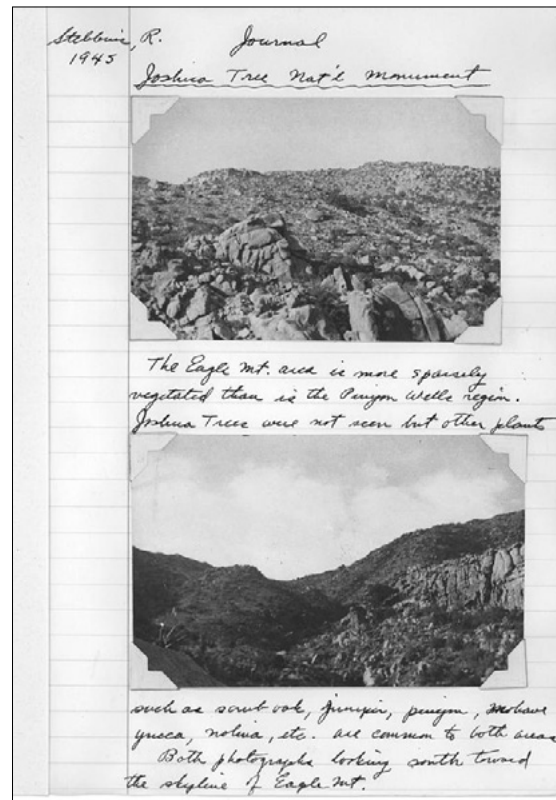 Stebbins, R.
1945
Journal
Joshua Tree Nat'l Monument
The Eagle Mt. area is more sparsely
vegetated than is the Pinyon Wells region.
Joshua Trees were not seen but other plants
such as scrub oak, juniper, pinyon, mohave
yucca, nolina, etc. are common to both areas
Both photographs looking south toward
the skyline of Eagle Mt.